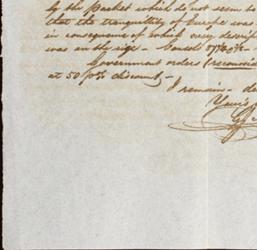 by the Packet which do not seem to
that the tranquility of Europe was
in consequence of which every descrip
was on the rise - Consols
Government orders
at 50 p% discount -
I remain - de
Yours